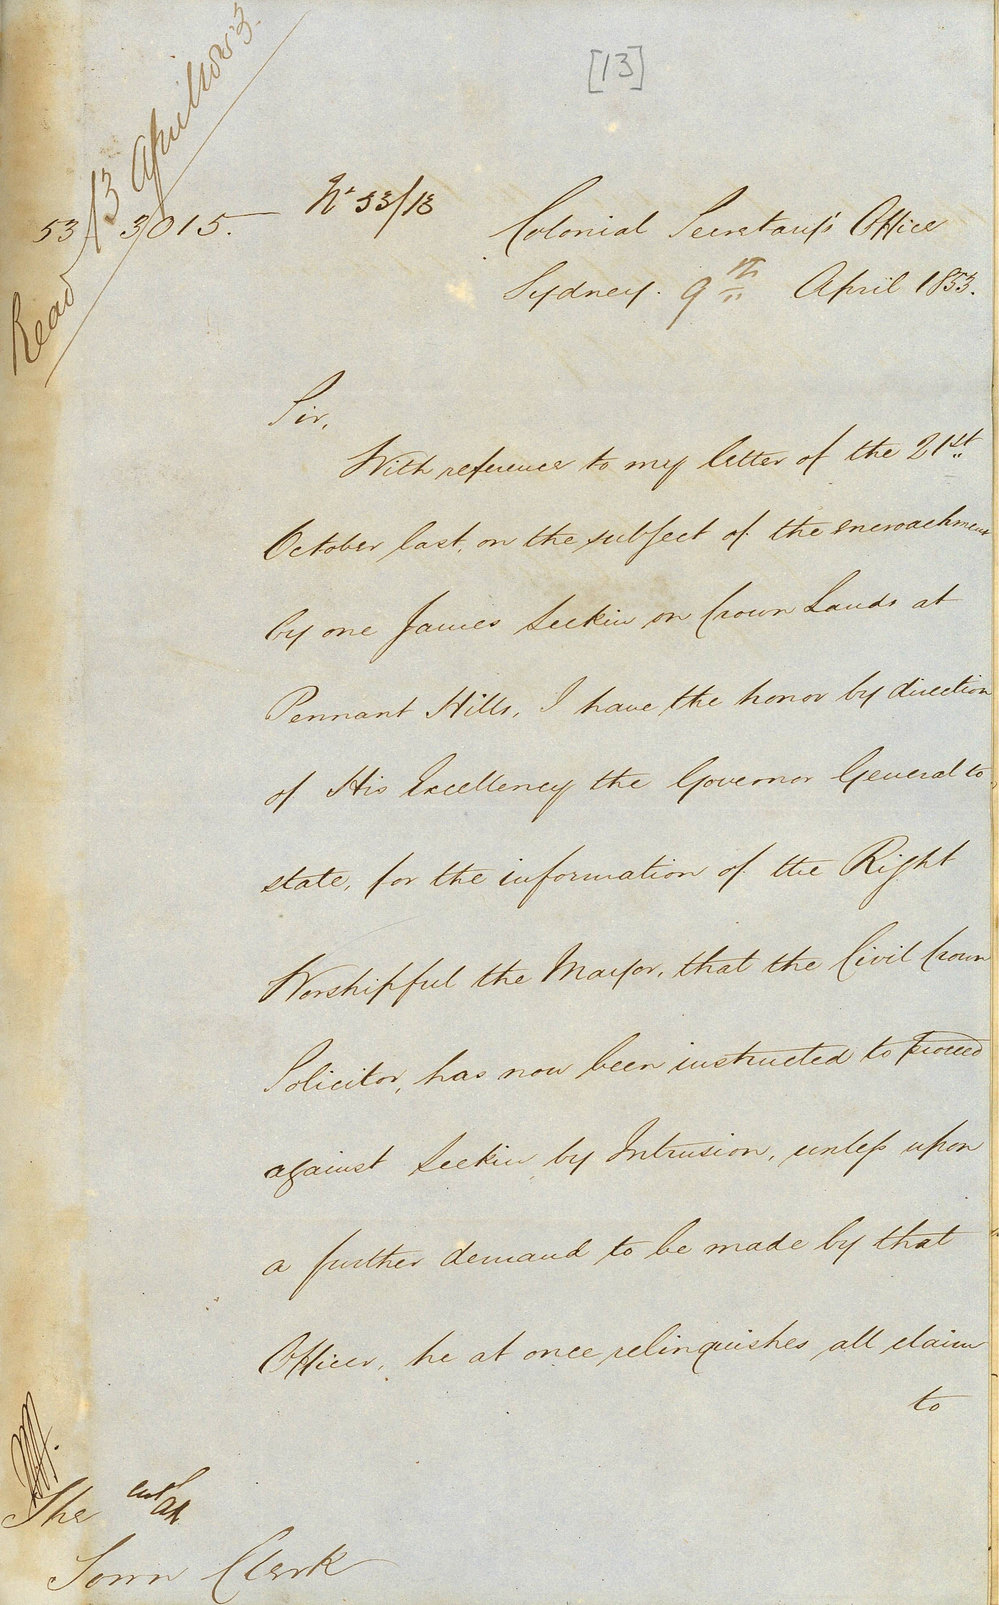 [13]
Read 13 April 1853.
53/3015.
No 53/13
Colonial Secretary's Office
Sydney. 9th April 1853.
Sir,
With reference to my letter of the 21st
October last, on the subject of the encroachment
by one James Seekin on Crown Lands at
Pennant Hills, I have the honor by direction
of His Excellency the Governor General to
state, for the information of the Right
Worshipful the Mayor, that the Civil Crown
Solicitor, has now been instructed to proceed
against Seekin by Intrusion, unless upon
a further demand to be made by that
Officer, he at once relinquishes all claim
to
The
Town Clerk